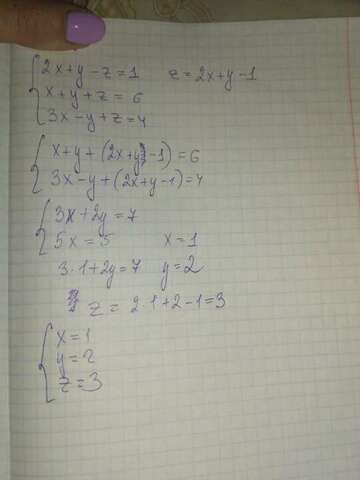 2x+y-z=1 z=2x+y-1
x+y+z=6
3x-y+z=4
x+y+(2x+y-1)=6
3x-y+(2x+y-1)=4
3x+2y=7
5x=5 x=1
3·1+2y=7 y=2
z=2·1+2-1=3
x=1
y=2
z=3